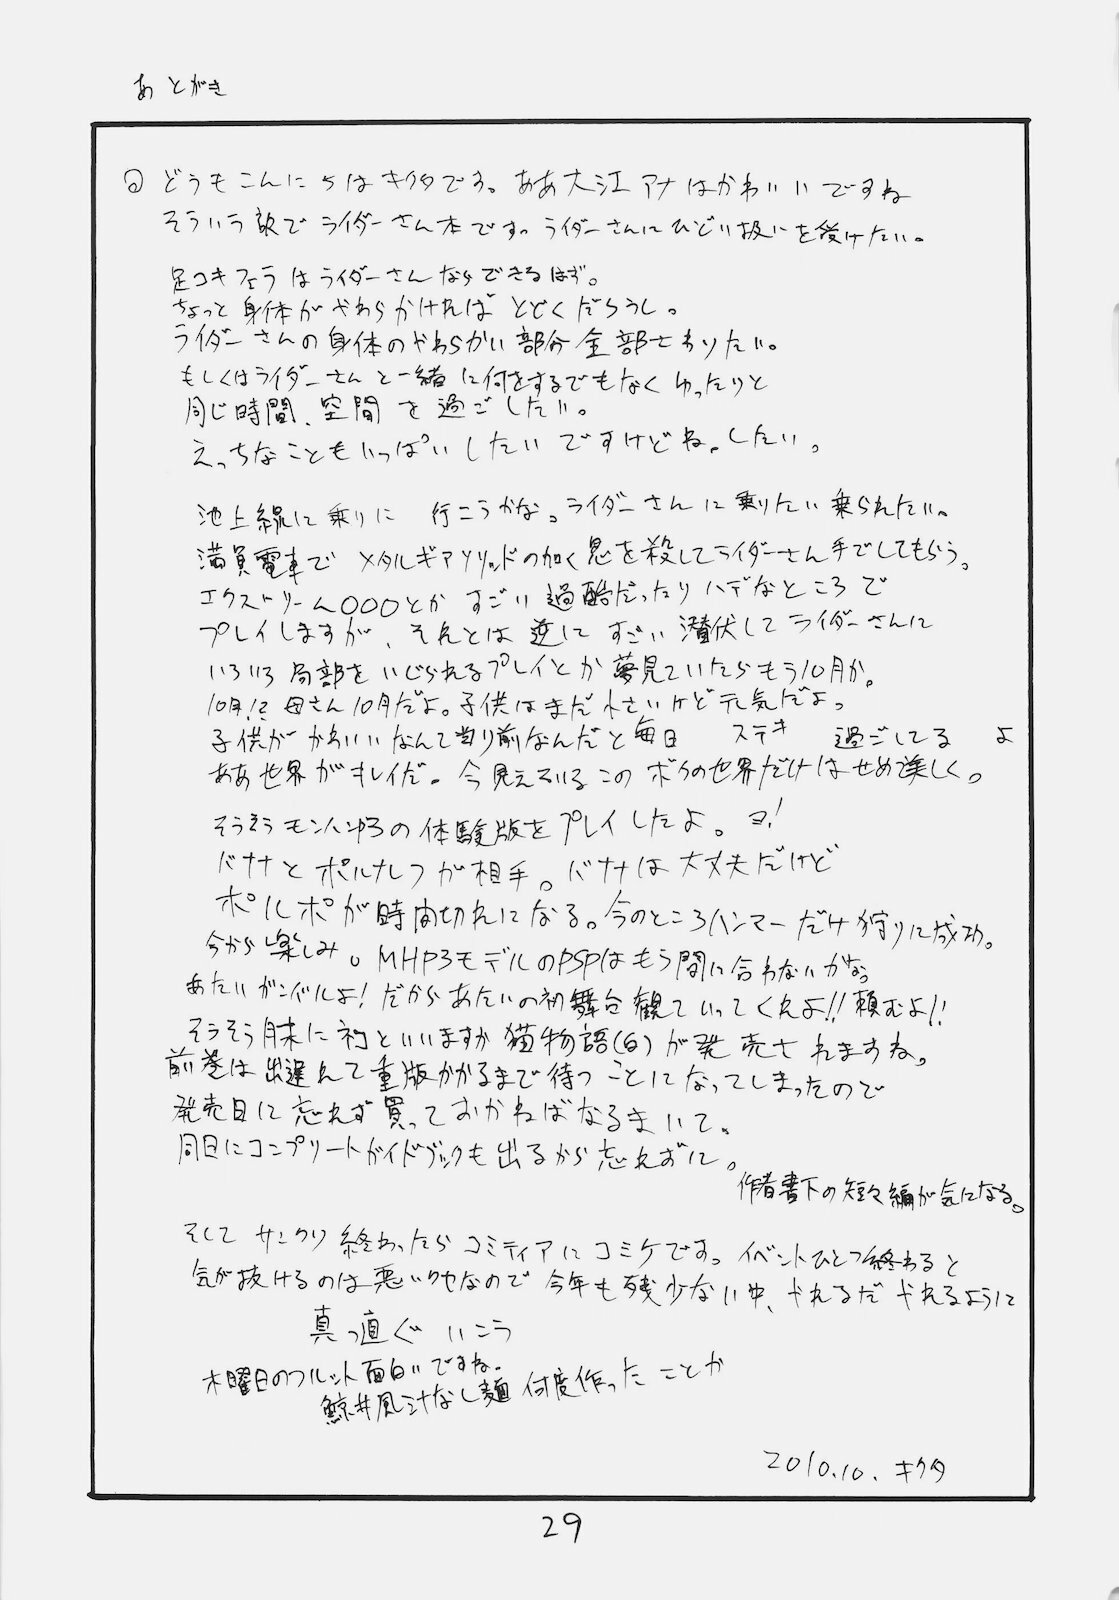 あとがき
どうもこんにちはキクタです。ああ大江アナはかわいいですね
そういう訳でライダーさん本です。ライダーさんにひどい扱いを受けたい。
足コキフェラはライダーさんならできるはず。
ちょっと身体がやわらかければとどくだろうし。
ライダーさんの身体のやわらかい部分全部さわりたい。
もしくはライダーさんと一緒に何をするでもなくゆったりと
同じ時間、空間を過ごしたい。
えっちなこともいっぱいしたいですけどね。したい。
池上線に乗りに 行こうかな。ライダーさんに乗りたい乗られたい。
満員電車でメタルギアソリッドの如く息を殺してライダーさん手でしてもらう。
エクストリーム○○○とかすごい過酷だったりハデなところで
プレイしますが、それとは逆にすごい潜伏してライダーさんに
いろいろ局部をいじられるプレイとか夢見ていたらもう10月か。
10月!? 母さん10月だよ。子供はまだ小さいけど元気だよ
子供がかわいいなんて当り前なんだと毎日 ステキ 過ごしてる よ
ああ世界がキレイだ。今見えているこのボクの世界だけはせめ美しく。
そうそうモンハン3の体験版をプレイしたよ。ヨ!
バナナとポルナレフが相手。バナナは大丈夫だけど
ポルポが時間切れになる。今のところハンマーだけ狩りに成功。
今から楽しみ。MHP3モデルのPSPはもう間に合わないかな。
あたいガンバルよ!だからあたいの初舞台観ていってくれよ!!頼むよ!!
そうそう月末に初といいますか猫物語(白)が発売されますね。
前巻は出遅れて重版かかるまで待つことになってしまったので
発売日に忘れず買っておかねばなるまいて。
同日にコンプリートガイドブックも出るから忘れずに。
作者書下の短々編が気になる。
そしてサンクリ終わったらコミティアにコミケです。イベントひとつ終わると
気が抜けるのは悪いクセなので今年も残少ない中、やれるだやれるように
真っ直ぐいこう
木曜日のフルット面白いですね。
鯨井風汁なし麺何度作ったことか
2010.10.キクタ
29